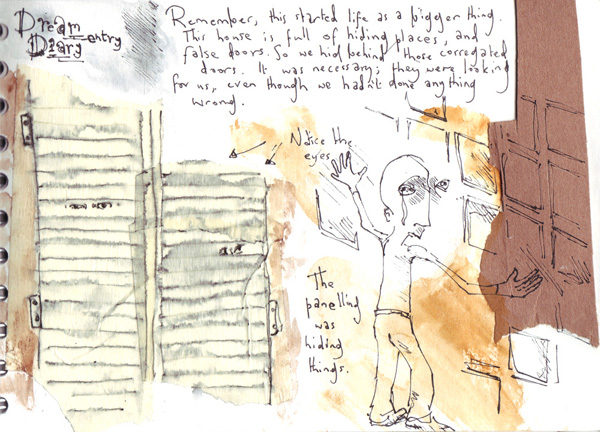 Dream
entry
Diary
Remember, this started life as a bigger thing.
This house is full of hiding places, and
false doors. So we hid behind those corregated
doors. It was necessary; they were looking
for us, even though we hadn't done anything
wrong.
Notice the
eyes
The
panelling
was
hiding
things.